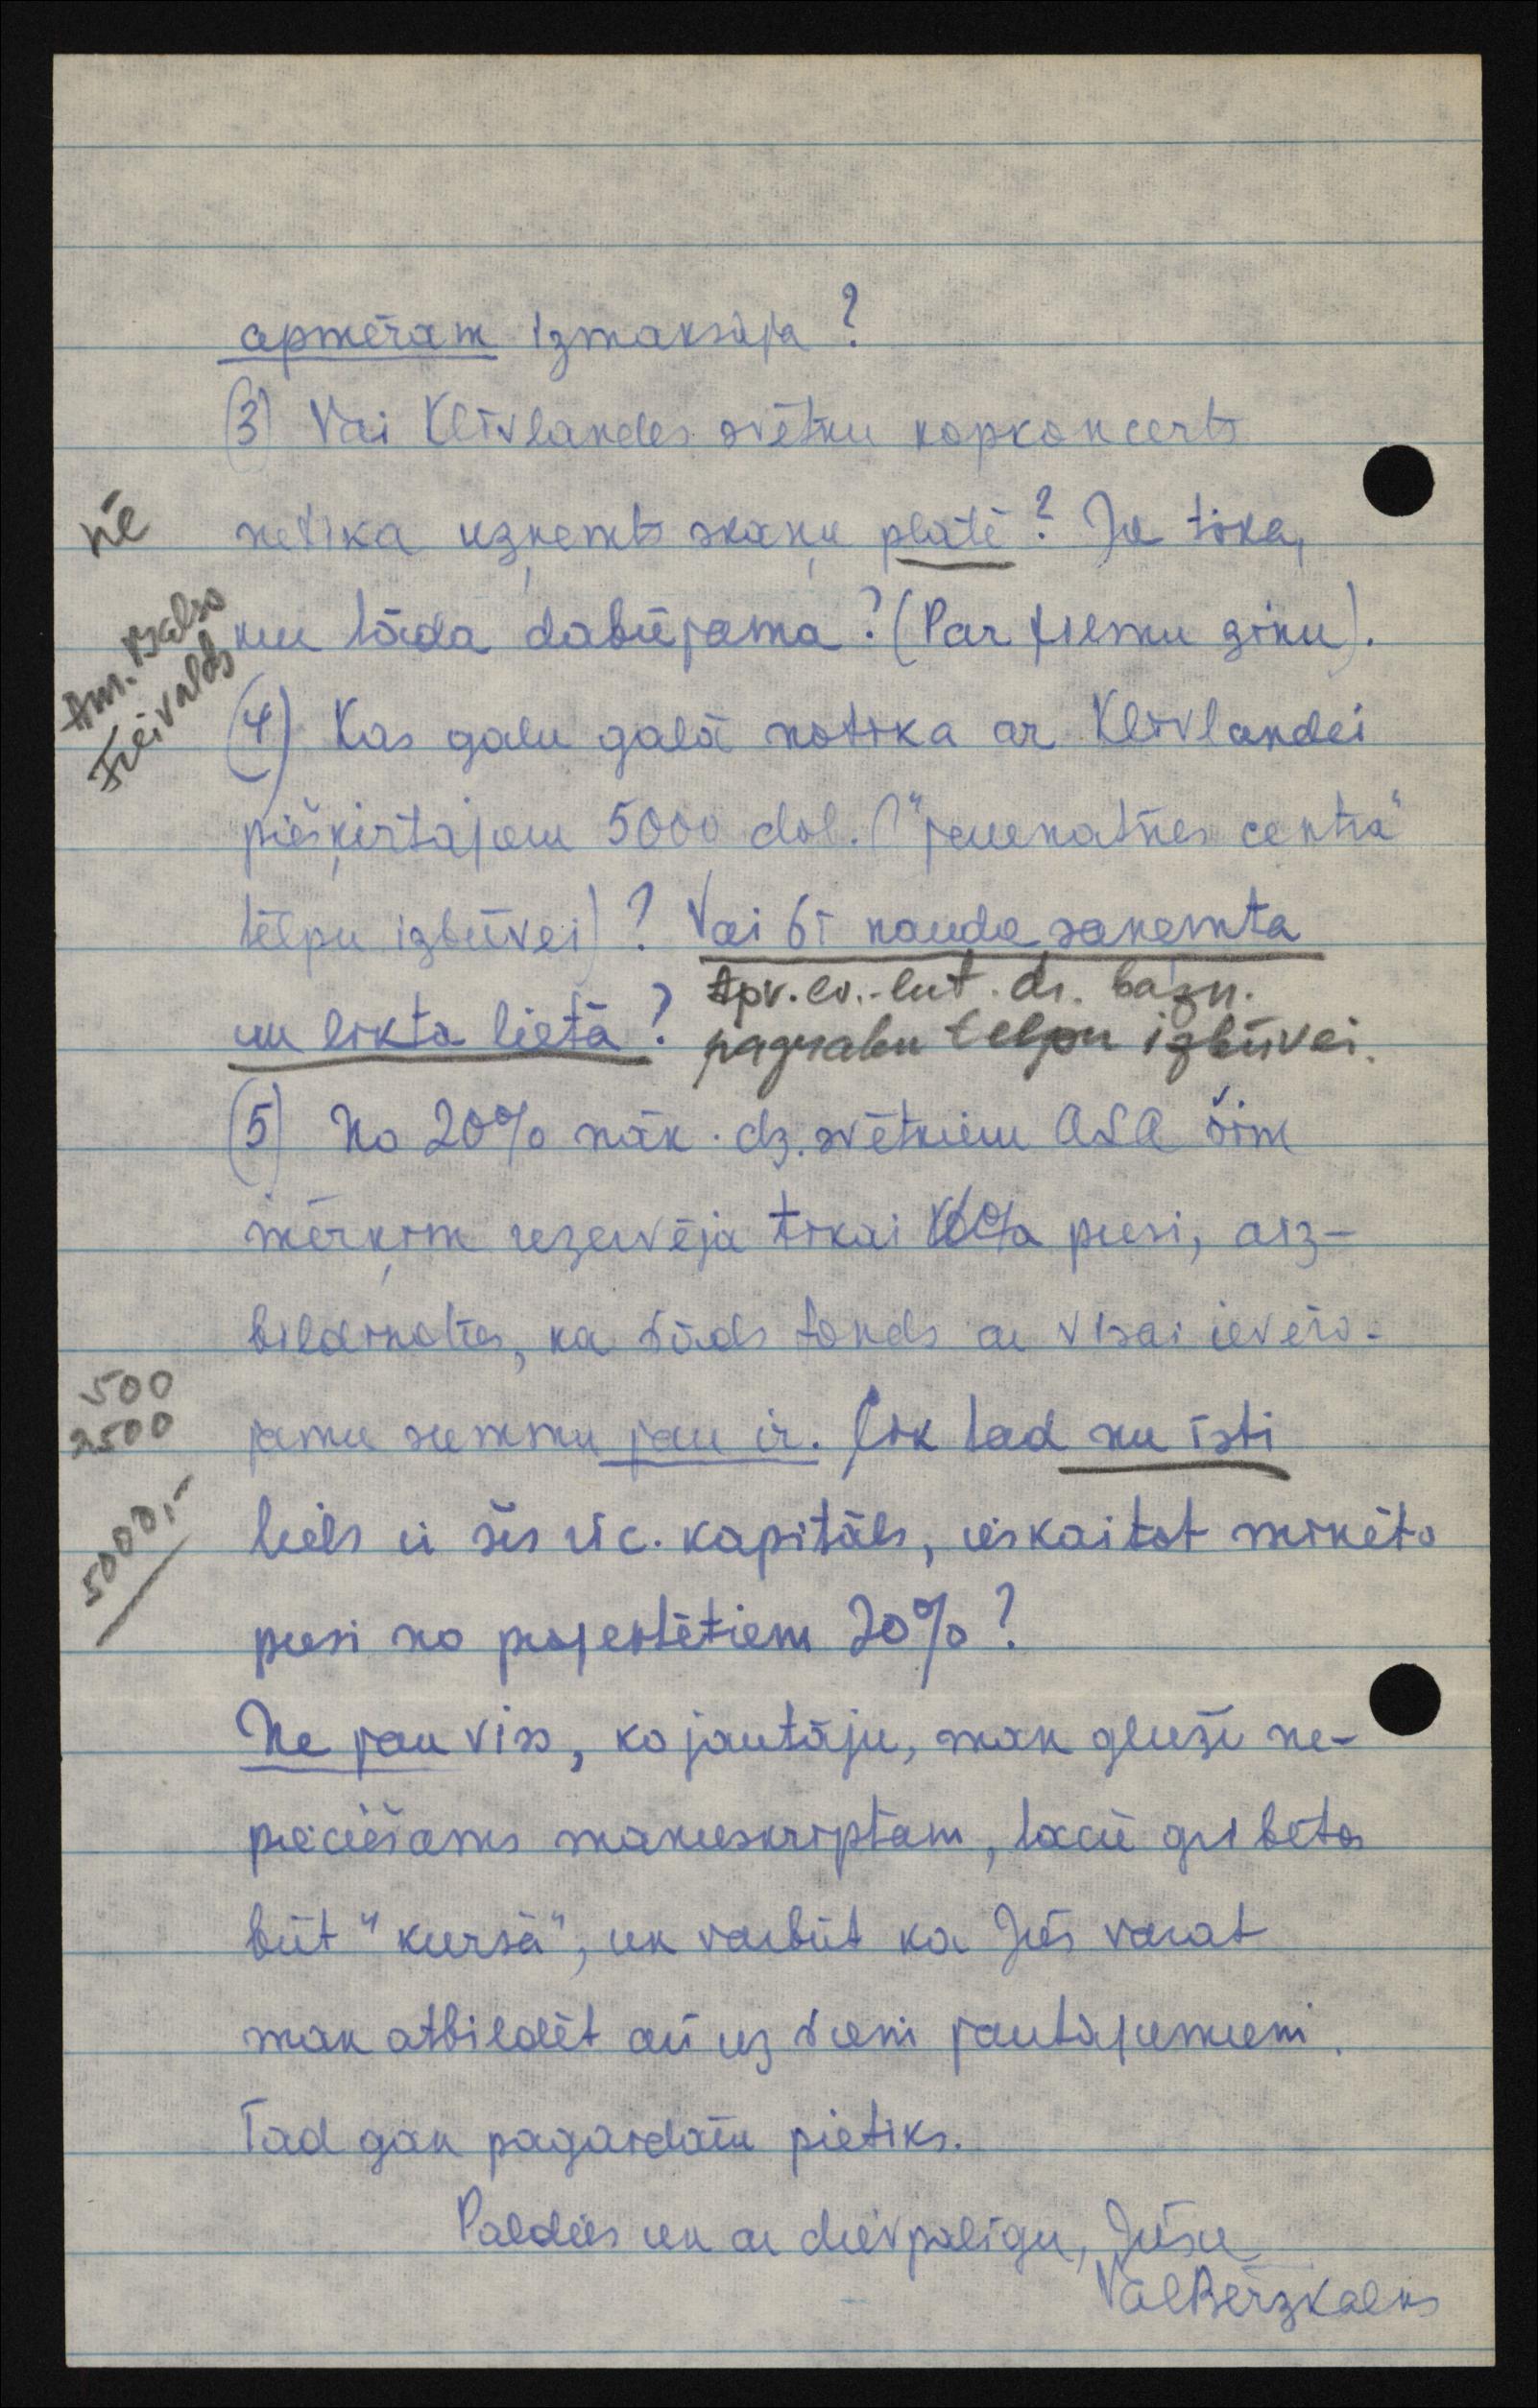 apmēram izmaksāja?
(3) Vai Klīvlandes svētku kopkoncerts
nē
netika uzņemts skaņu platē? Ja tika,
kur tāda dabūjama? (Par filmu zinu).
Am. Balso
Freivalds
(4) Kas galu galā notika ar Klīvlandei
piešķirtajiem 5000 dol. ("jaunatnes centra"
telpu izbūvei)? Vai šī nauda saņemta
un likta lietā? Apv. ev.-lut. dr. bazn.
pagrabu telpu izbūvei.
(5) No 20% nāk. dz. svētkiem ALA šim
mērķim rezervēja tikai pusi, aiz-
bildinoties, ka šāds fonds ar visai ievēro-
500
2500
jamu summu jau ir. Cik tad nu īsti
5000,-
liels ir šis t.c. kapitāls, ieskaitot minēto
pusi no projektētiem 20%?
Ne jau viss, ko jautāju, man gluži ne-
pieciešams manuskriptam, taču gribētos
būt "kursā", un varbūt ka Jūs varat
man atbildēt arī uz šiem jautājumiem.
Tad gan pagaidām pietiks.
Paldies un ar dievpalīgu, Jūsu
ValBērzkalns